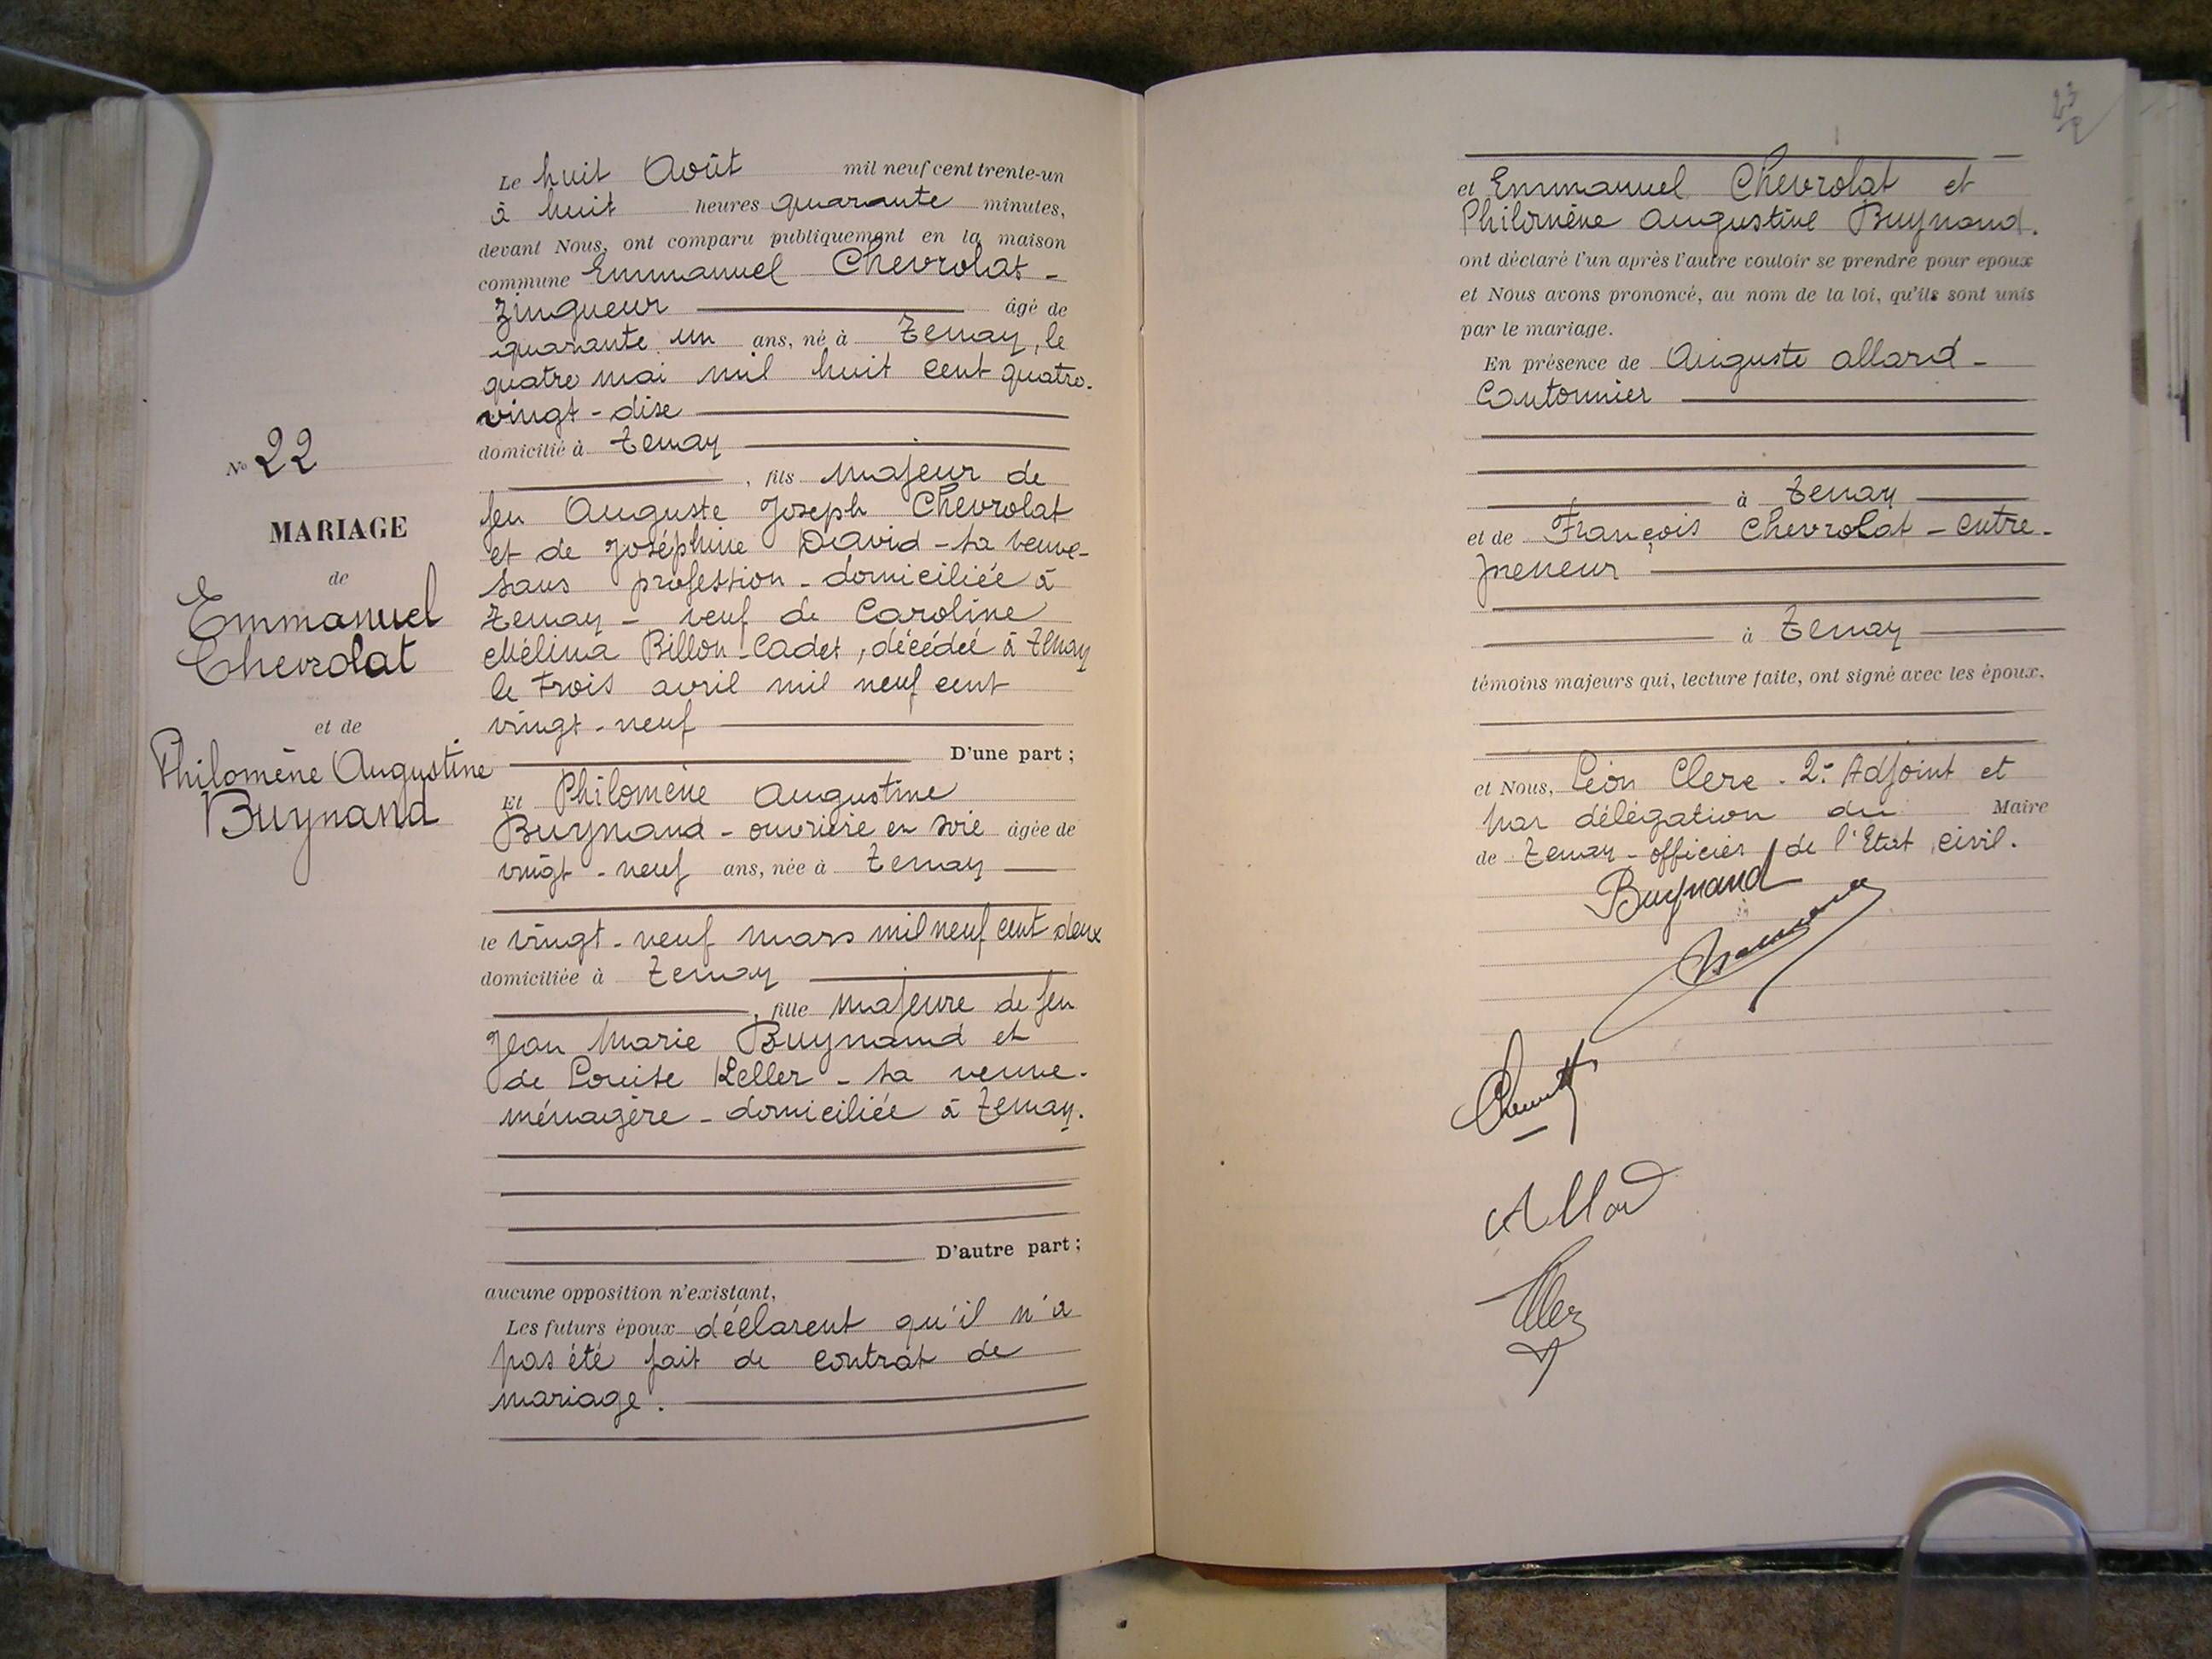 Nº 22
MARIAGE
de
Emmanuel
Chevrolat
et de
Philomène Augustine
Buynand
Le huit Août mil neuf cent trente-un
à huit heures quarante minutes,
devant Nous, ont comparu publiquement en la maison
commune Emmanuel Chevrolat -
zingueur âgé de
quarante un ans, né à Tenay, le
quatre mai mil huit cent quatre-
vingt-dise
domicilié à Tenay
, fils majeur de
feu Auguste Joseph Chevrolat
et de Joséphine David - sa veuve -
sans profession - domiciliée à
Tenay - veuf de Caroline
Mélina Billon-Cadet, décédée à Tenay
le trois avril mil neuf cent
vingt-neuf
D'une part ;
Et Philomène Augustine
Buynand - ouvrière en soie âgée de
vingt-neuf ans, née à Tenay
le vingt-neuf mars mil neuf cent deux
domiciliée à Tenay
, fille majeure de feu
Jean Marie Buynand et
de Louise Keller - sa veuve -
ménagère - domiciliée à Tenay.
D'autre part ;
aucune opposition n'existant,
Les futurs époux déclarent qu'il n'a
pas été fait de contrat de
mariage.
23
et Emmanuel Chevrolat et
Philomène Augustine Buynand.
ont déclaré l'un après l'autre vouloir se prendre pour epoux
et Nous avons prononcé, au nom de la loi, qu'ils sont unis
par le mariage.
En présence de Auguste Allard -
Cantonnier
à Tenay
et de François Chevrolat - entre-
preneur
à Tenay
témoins majeurs qui, lecture faite, ont signé avec les époux.
et Nous, Léon Clerc - 2e Adjoint et
par délégation du Maire
de Tenay - officier de l'Etat civil.
Buynand
Allard